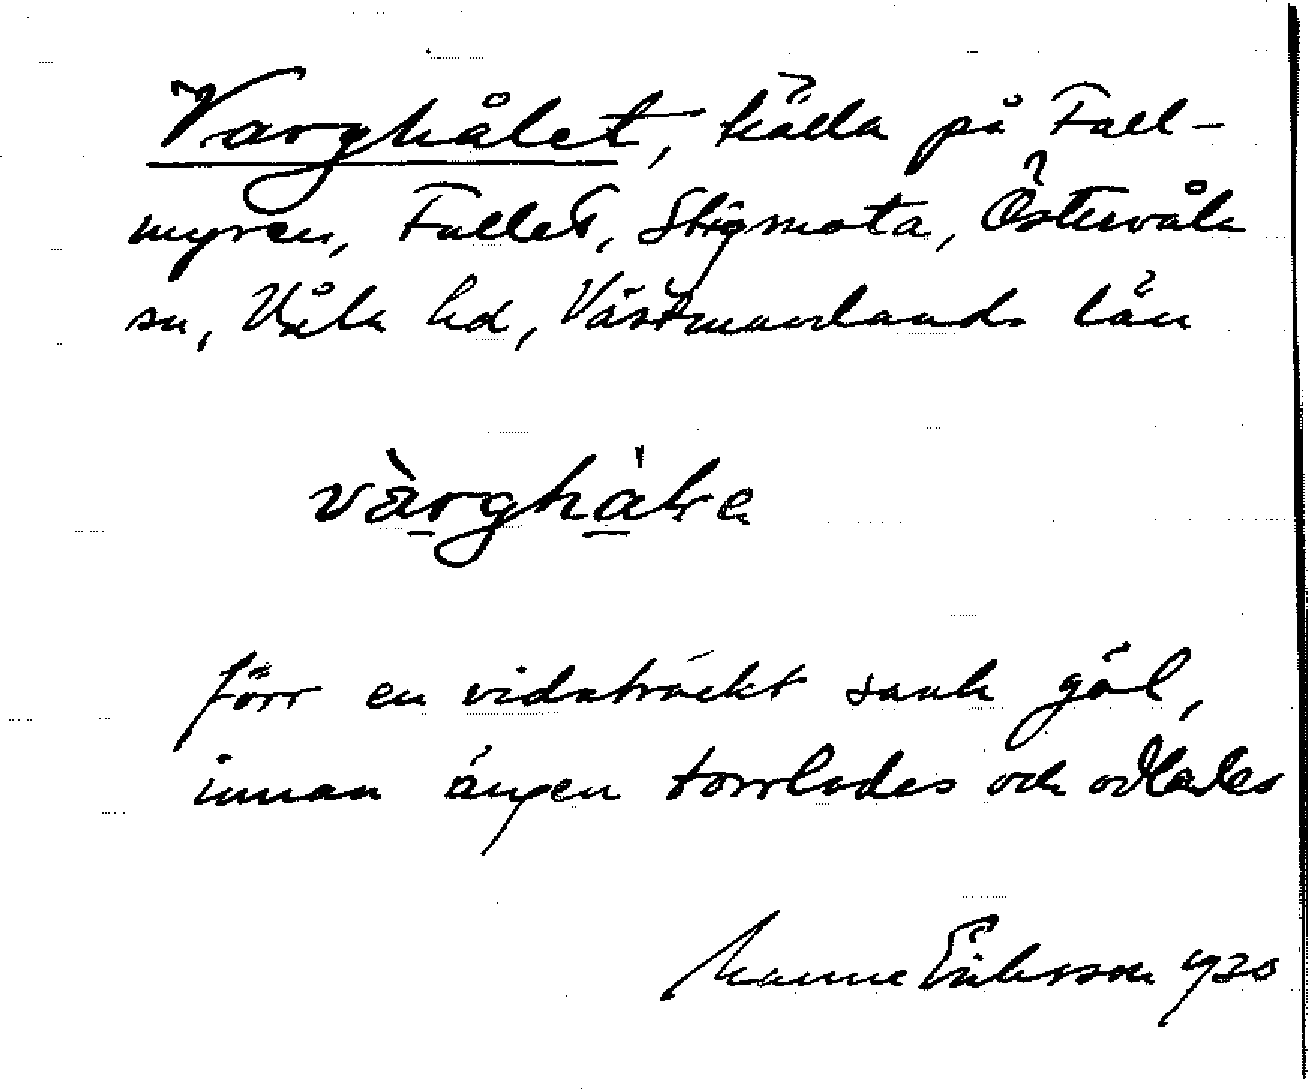 Varghålet, källa på Fall-
myren, Fallet, Stigmota, Östervåla
sn, Våla hd, Västmanlands län
varghåLe
förr en vidsträckt sank göl,
innan ängen torrlades och odlades
Manne Eriksson 1930